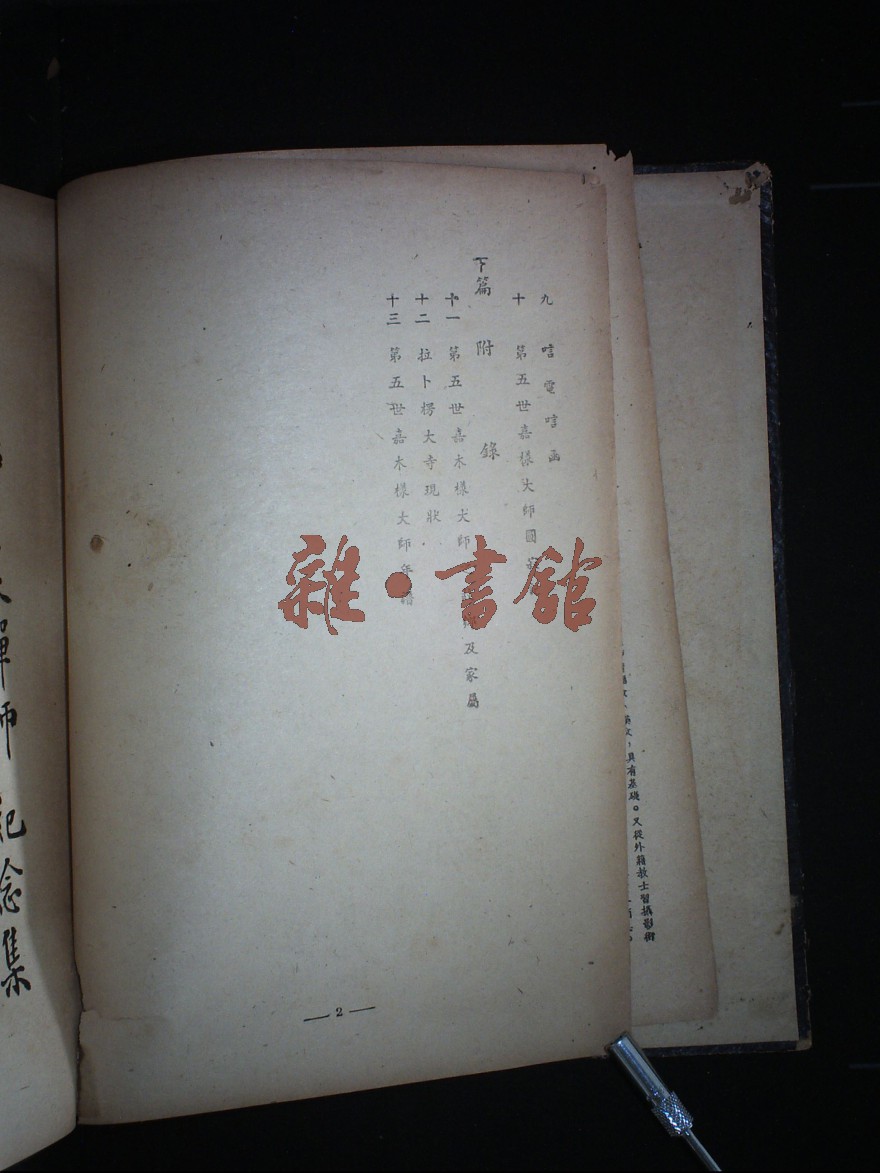 九 唁電唁函
十 第五世嘉木樣大師圓
下篇 附錄
十一 第五世嘉木樣大師 及家屬
十二 拉卜楞大寺現狀
十三 第五世嘉木樣大師年譜
— 2 —
雜·書館
具有基礎。又從外籍教士習攝影術
禪師紀念集